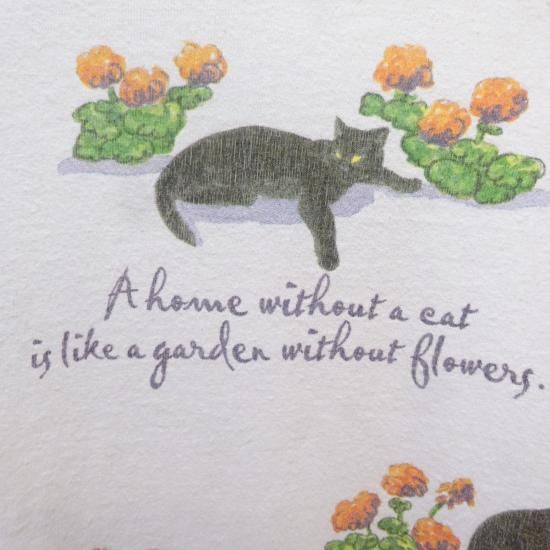 A home without a cat
is like a garden without flowers.